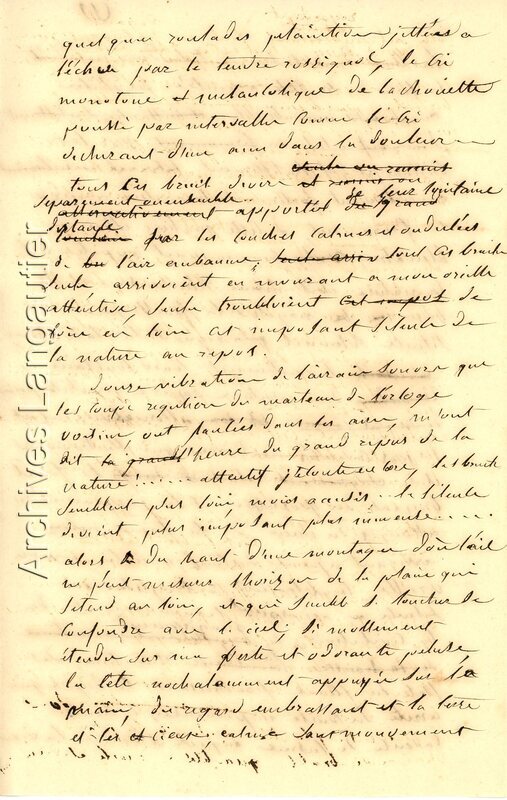 quelques roulades plaintives jettées a
l'écho par le tendre rossignol, le cri
monotone et melancolique de la chouette
poussé par intervalles comme le cri
déchirant d'une ame dans la douleur
tous ces bruits divers et réunis ou
séparément ou ensemble de leur lointaine
alternativement apportés du grand
distance par les couches calmes et ondulées
de l'air embaumé, tous ces bruits
seuls arrivoient en mourant a mon oreille
attentive, seuls troubloient cet impos de
loin en loin cet imposant silence de
la nature au repos.
Douze vibrations de l'airain sonore que
les coups reguliers du marteau de l'orloge
voisine, ont lancées dans les airs, m'ont
dit la grande l'heure du grand repos de la
nature!...... attentif j'écoute encore, les bruits
semblent plus loin, moins accusés... le silence
devient plus imposant plus immense.....
alors du haut d'une montagne d'où l'œil
ne peut mesurer l'horizon de la plaine qui
s'étend au loin, et qui semble se toucher se
confondre avec le ciel; si mollement
étendu sur une verte et odorante pelouse
la tête nochalamment appuyée sur la
main, du regard embrassant et la terre
et les cieux, calme sans mouvement
Archives Langautier